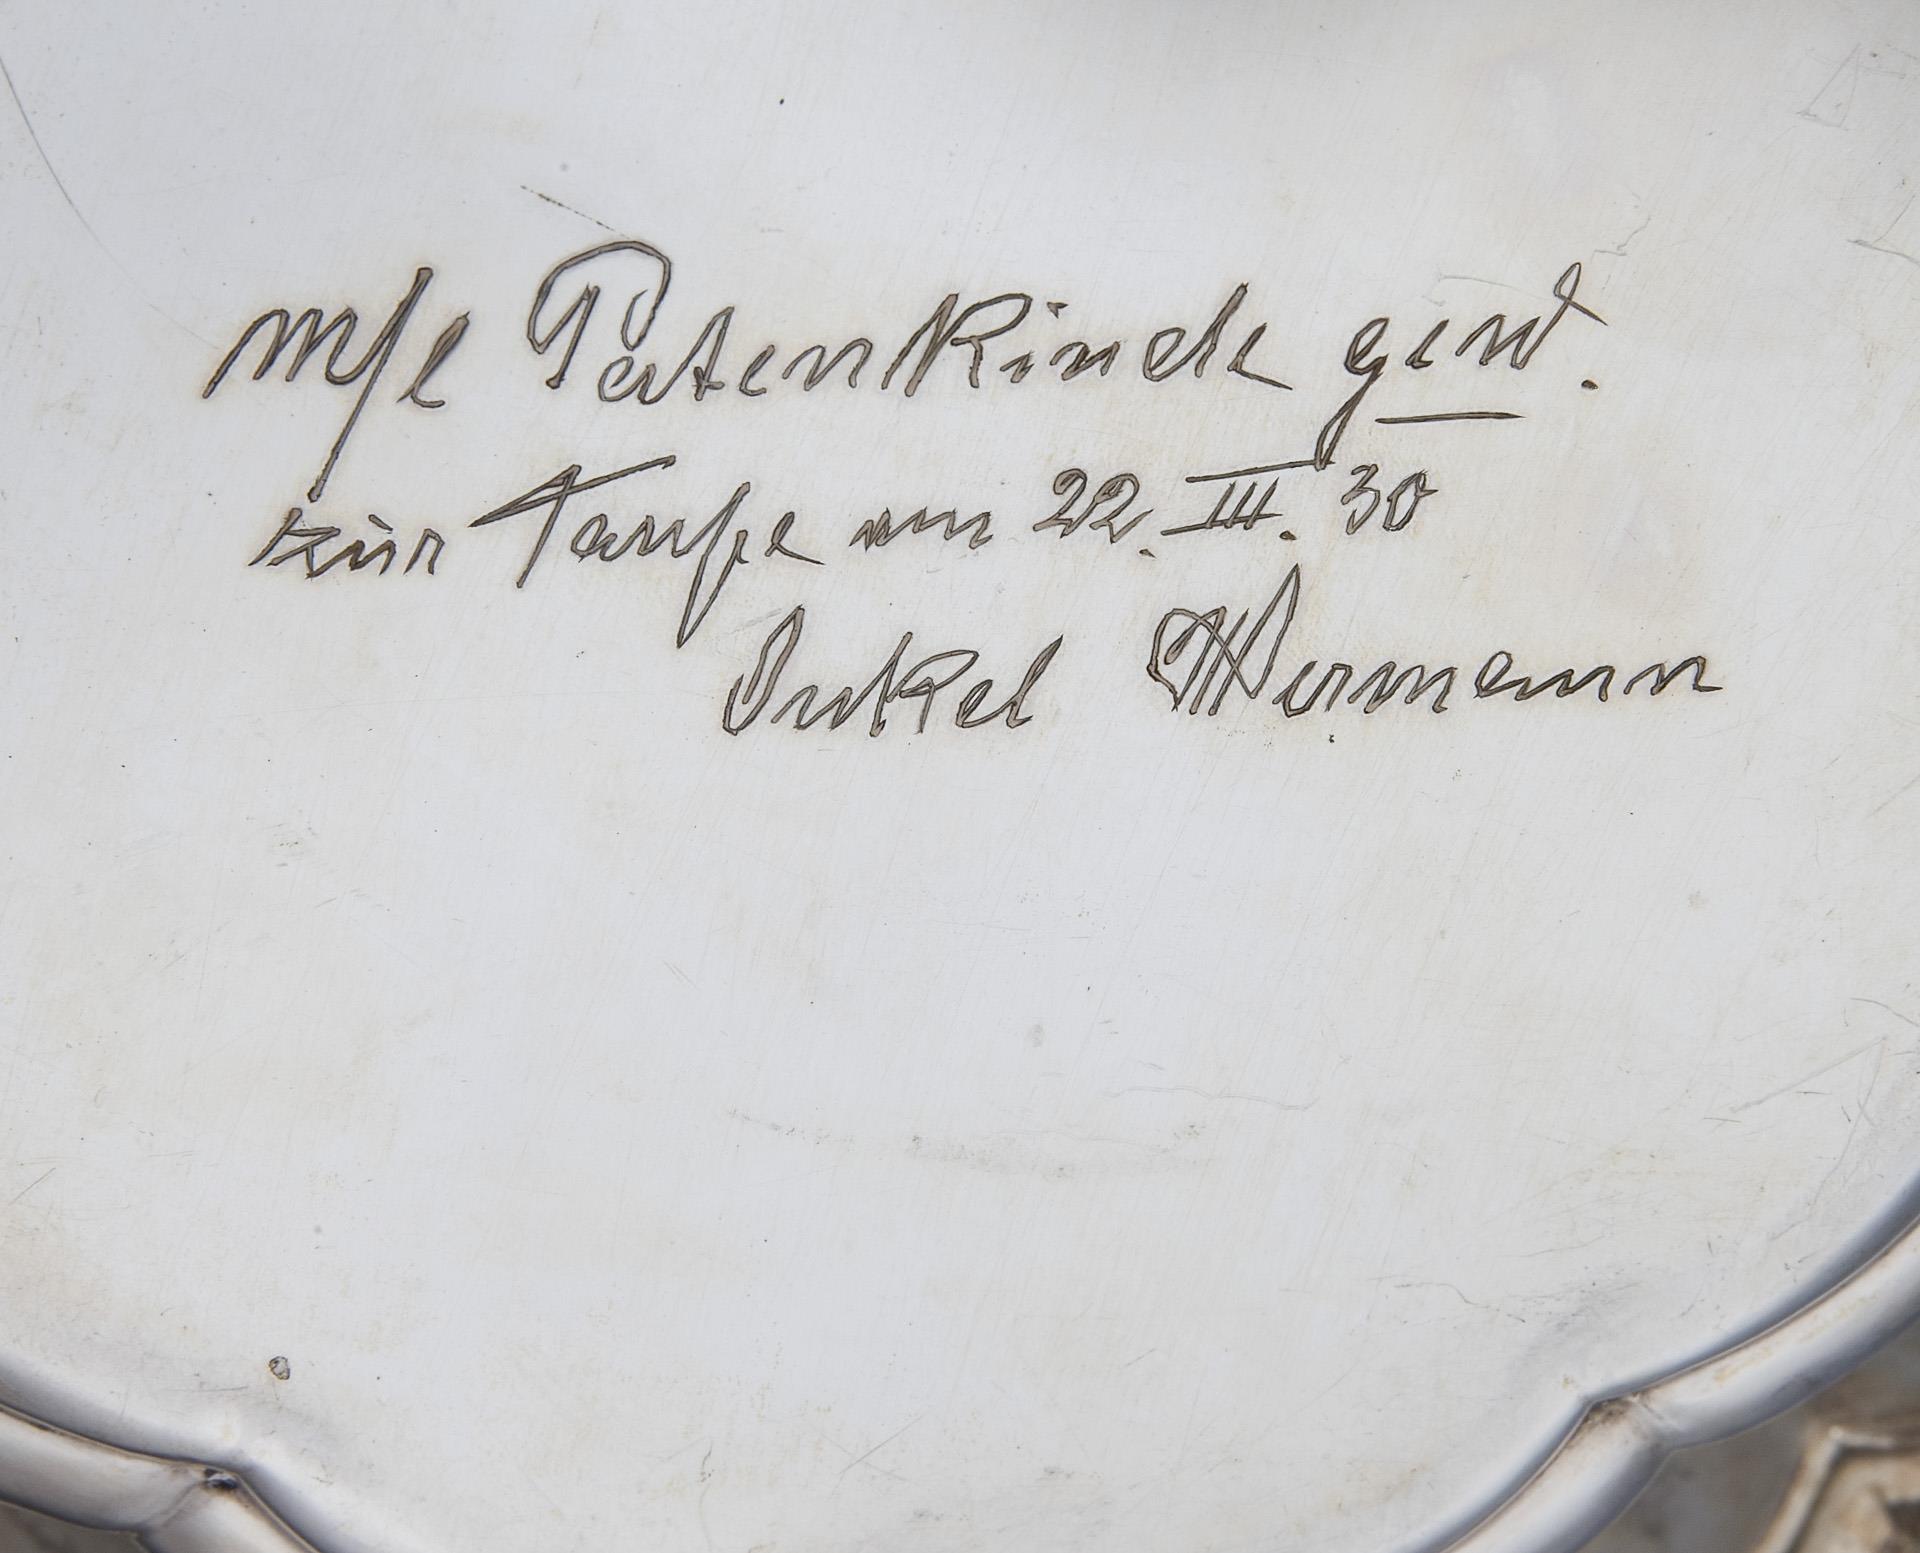 m/e Patenkinde gew.
zur Taufe am 22. III. 30
Onkel Hermann